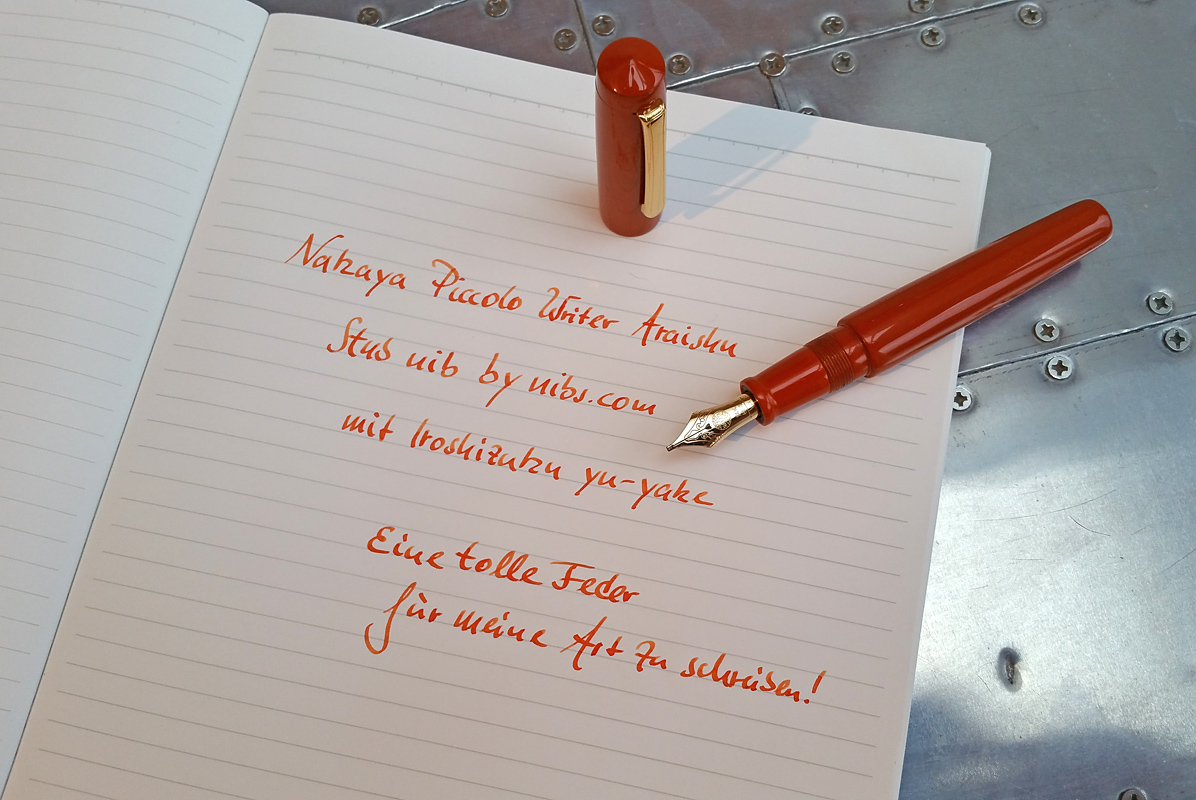 Nakaya Piccolo Writer Araishu
Stub nib by nibs.com
mit Iroshizuku yu-yake
Eine tolle Feder
für meine Art zu schreiben!